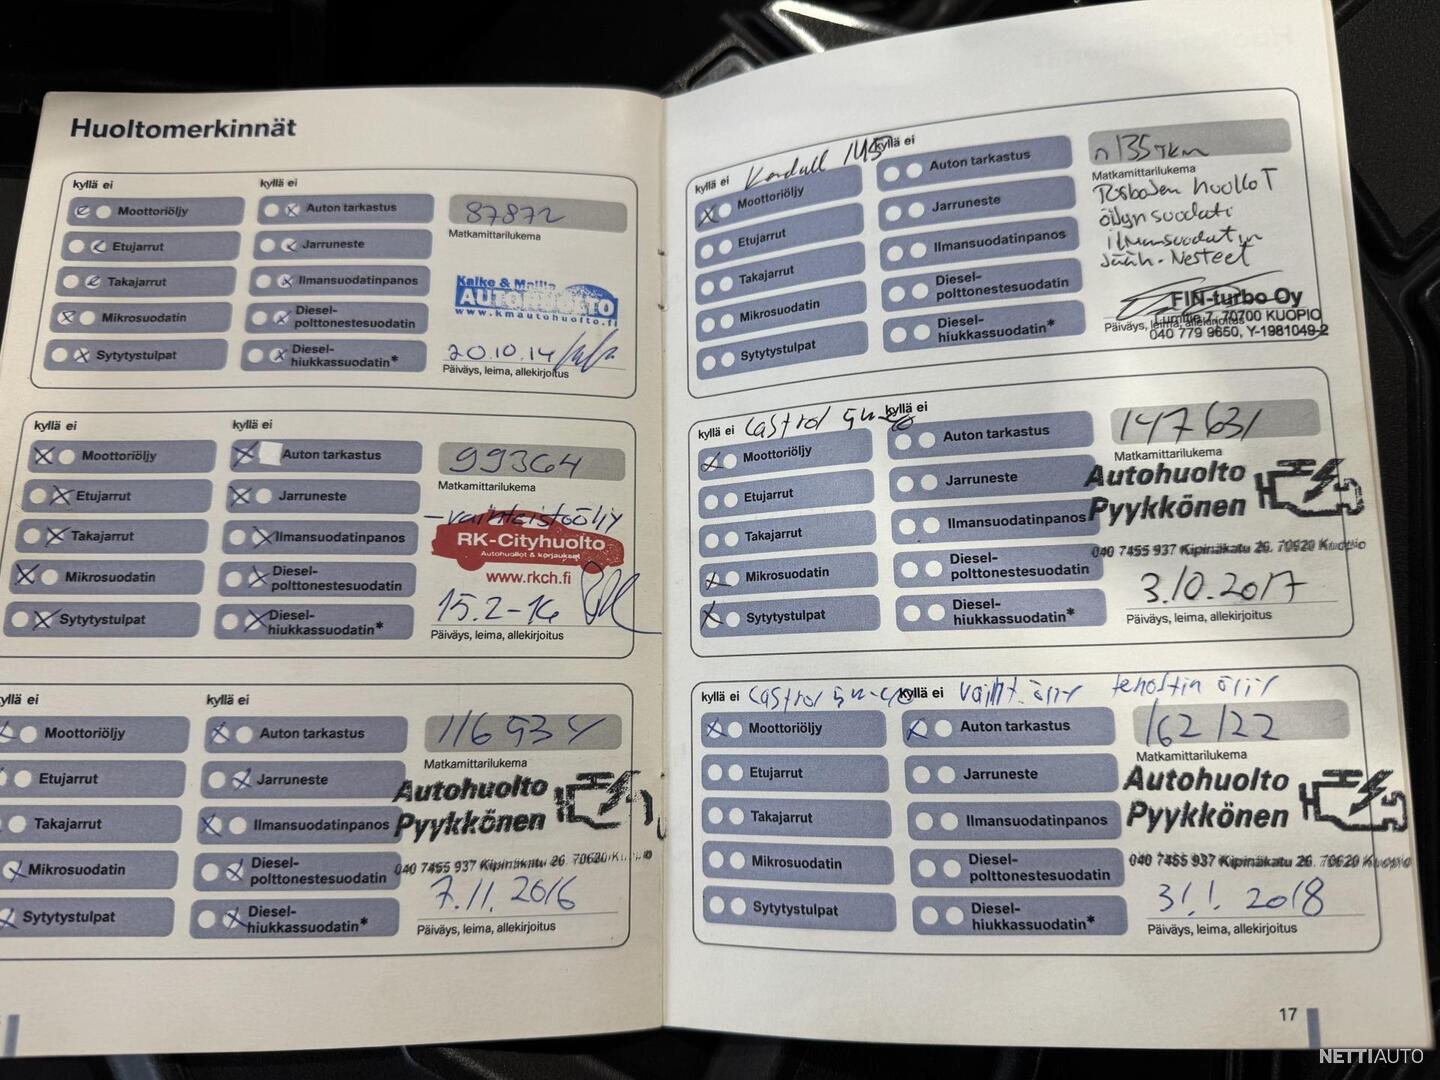 Huoltomerkinnät
kyllä ei
kyllä ei
Moottoriöljy
Auton tarkastus
87872
Matkamittarilukema
Etujarrut
Jarruneste
Takajarrut
Ilmansuodatinpanos
Kalke & Matin
AUTOHUOLTO
www.kmautohuolto.fi
Mikrosuodatin
Diesel-
polttonestesuodatin
Sytytystulpat
Diesel-
hiukkassuodatin*
20.10.14
Päiväys, leima, allekirjoitus
kyllä ei
kyllä ei
Moottoriöljy
Auton tarkastus
99364
Matkamittarilukema
Etujarrut
Jarruneste
- vaihteistoöljy
Takajarrut
Ilmansuodatinpanos
RK-Cityhuolto
Autohuollot & korjaukset
www.rkch.fi
Mikrosuodatin
Diesel-
polttonestesuodatin
Sytytystulpat
Diesel-
hiukkassuodatin*
15.2-16
Päiväys, leima, allekirjoitus
kyllä ei
kyllä ei
Moottoriöljy
Auton tarkastus
116934
Matkamittarilukema
Etujarrut
Jarruneste
Autohuolto
Pyykkönen
Takajarrut
Ilmansuodatinpanos
040 7455 937 Kipinäkatu 26. 70620 Kuopio
Mikrosuodatin
Diesel-
polttonestesuodatin
7.11.2016
Sytytystulpat
Diesel-
hiukkassuodatin*
Päiväys, leima, allekirjoitus
kyllä ei Kendall kyllä ei
Moottoriöljy
Auton tarkastus
n 135 tkm
Matkamittarilukema
Etujarrut
Jarruneste
huollot
öljynsuodati
Takajarrut
Ilmansuodatinpanos
ilmansuodatin
Jääh. Nesteet
Mikrosuodatin
Diesel-
polttonestesuodatin
FIN-turbo Oy
7, 70700 KUOPIO
040 779 9650, Y-1981049-2
Päiväys, leima, allekirjoitus
Sytytystulpat
Diesel-
hiukkassuodatin*
kyllä ei Castrol kyllä ei
Moottoriöljy
Auton tarkastus
147631
Matkamittarilukema
Etujarrut
Jarruneste
Autohuolto
Pyykkönen
Takajarrut
Ilmansuodatinpanos
040 7455 937 Kipinäkatu 26. 70620 Kuopio
Mikrosuodatin
Diesel-
polttonestesuodatin
3.10.2017
Sytytystulpat
Diesel-
hiukkassuodatin*
Päiväys, leima, allekirjoitus
kyllä ei Castrol 5w-40 kyllä ei vaiht. öljy tehostin öljy
Moottoriöljy
Auton tarkastus
162122
Matkamittarilukema
Etujarrut
Jarruneste
Autohuolto
Pyykkönen
Takajarrut
Ilmansuodatinpanos
040 7455 937 Kipinäkatu 26. 70620 Kuopio
Mikrosuodatin
Diesel-
polttonestesuodatin
31.1.2018
Sytytystulpat
Diesel-
hiukkassuodatin*
Päiväys, leima, allekirjoitus
17
NETTIAUTO